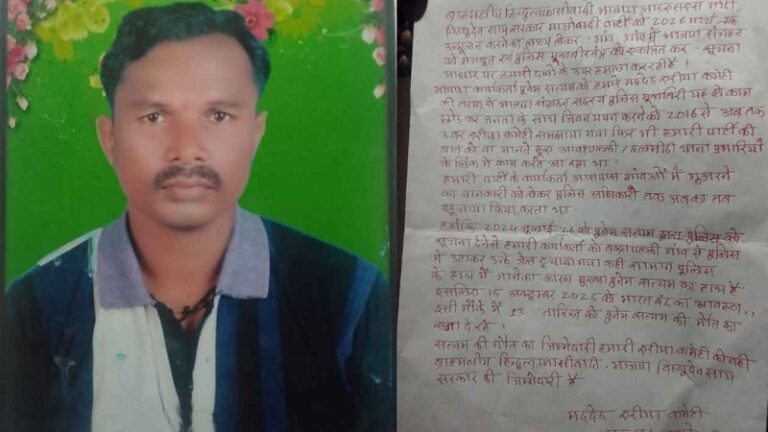 ब्राहमणीय हिन्दुत्व फासीवादी भाजपा आरएसएस मोदी
विष्णुदेव साय सरकार माओवादी पार्टी को 2026 मार्च तक
उन्मूलन करने का लक्ष्य लेकर गांव में भाजपा संगठन
को मजबूत एवं पुलिस को एकत्रित कर - सूचना
आधार पर हमारी दलों के उपर हमला कर रही है।
भाजपा कार्यकर्ता पुनेम सत्यम को हमारे मद्देड़ एरीया कमेटी
की तरफ से भाजपा संगठन सदस्य पुलिस मुखबिरी यह दो काम
छोड़ कर जनता के साथ जिवन यापन करने को 2016 से अब तक
3 बार एरीया कमेटी समझाया गया फिर भी हमारी पार्टी की
बात को ना मानते हुए आवापल्ली / इलमीडी थाना प्रभारियों
के लिंक में काम करते आ रहा था।
हमारी पार्टी के कार्यकर्ता आसपास गांवओं में गुजारने
का जानकारी को लेकर पुलिस अधिकारी तक जब का तब
पहुचाया किया करता था।
2024 जुलाई 26 को पुनेम सत्यम द्वारा पुलिस को
सूचना देने से हमारी कार्यकर्ता को गांव से पुलिस
ने उठाकर उन्हे जेल पुलिस
के हाथ में जाने का कारण पुनेम सत्यम का हाथ है
इसलिए 15 अक्टूबर 2025 को भारत बंद का आवहान,,
इसी मौके में 13 तारिख को पुनेम सत्यम को मौत का
सजा दे रहे।
सत्यम की मौत का जिम्मेदारी हमारी एरीया कमेटी को नही
ब्राहमणीय हिन्दुत्व फासीवादी, भाजपा विष्णुदेव साय
सरकार की जिम्मेदारी है
मद्देड़ एरीया कमेटी